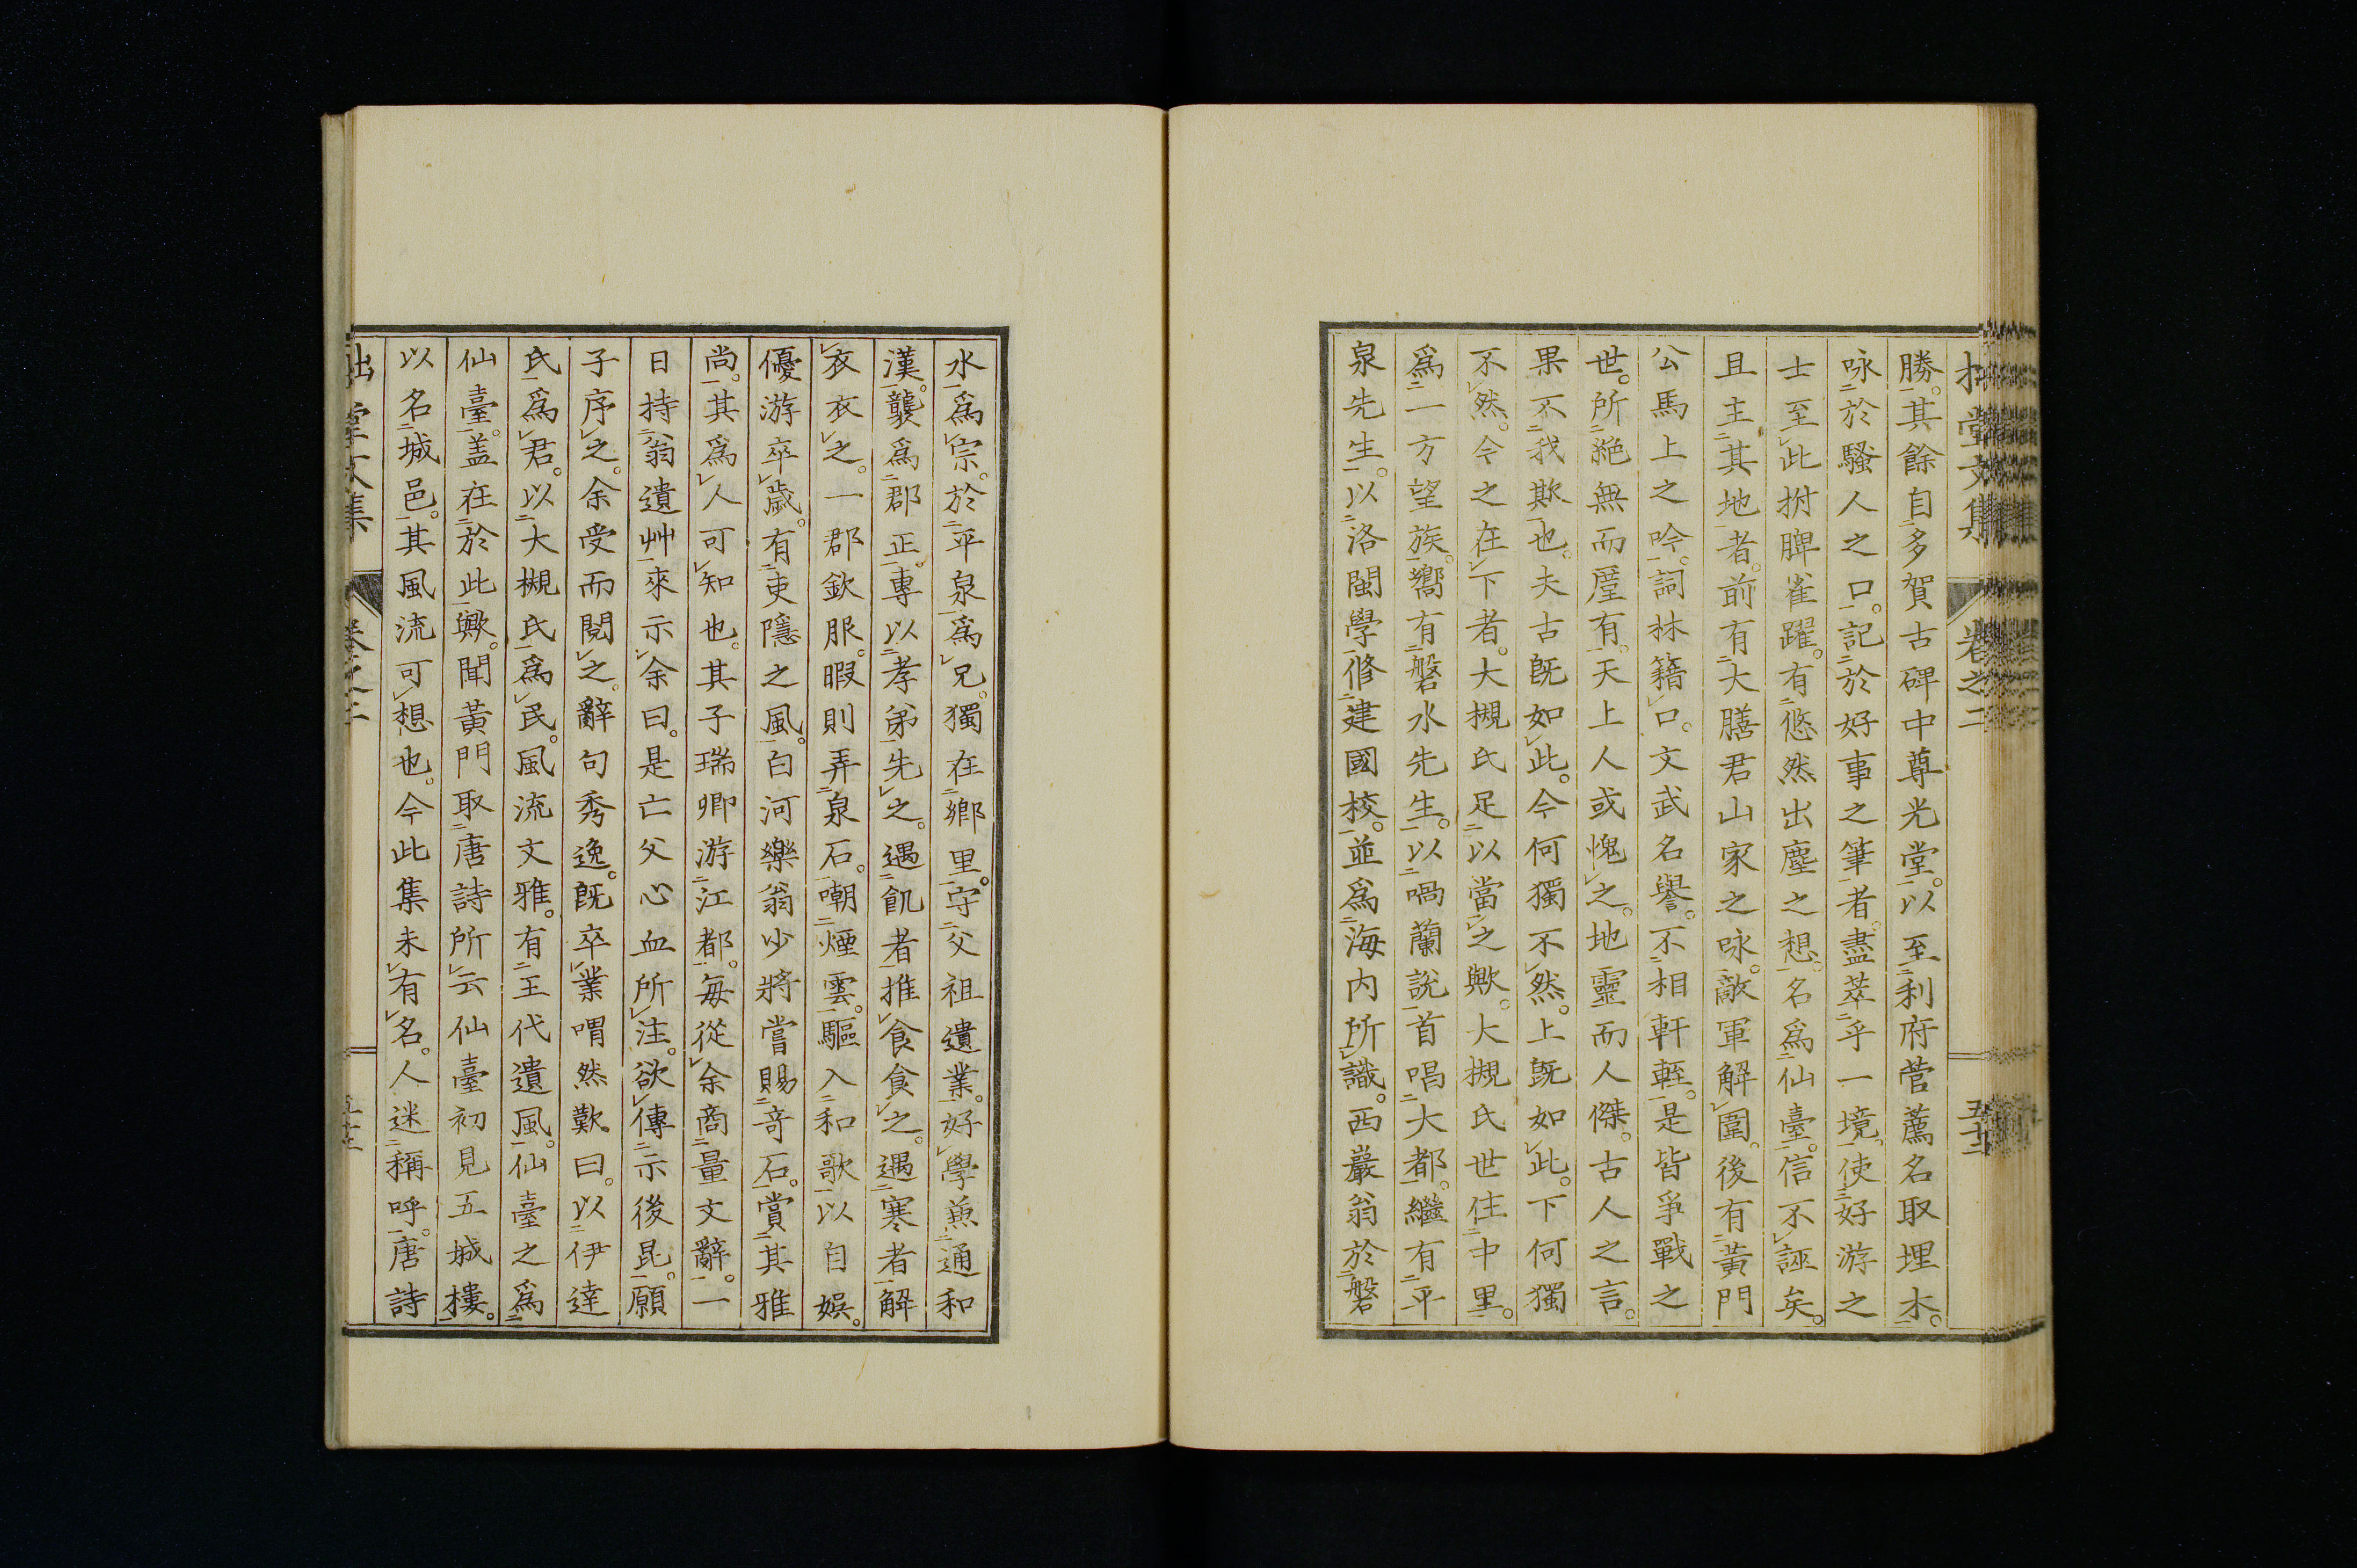 堂文集 卷之二 五十二
勝。其餘自多賀古碑中尊光堂。以至利府菅薦名取埋木。
咏於騷人之口。記於好事之筆者。盡萃乎一境。使好游之
士至此拊脾雀躍。有悠然出塵之想。名為仙臺。信不誣矣。
且主其地者。前有大膳君山家之咏。敵軍解圍。後有黃門
公馬上之吟。詞林籍口。文武名譽。不相軒輊。是皆爭戰之
世。所絕無而厪有。天上人或愧之。地靈而人傑。古人之言。
果不我欺也。夫古既如此。今何獨不然。上既如此。下何獨
不然。今之在下者。大槻氏足以當之歟。大槻氏世住中里。
爲一方望族。嚮有磐水先生。以喎蘭說首唱大都。繼有平
泉先生。以洛閩學修建國校。並爲海内所識。西巖翁於磐
水爲宗。於平泉爲兄。獨在鄉里。守父祖遺業。好學兼通和
漢。襲爲郡正。專以孝弟先之。遇飢者推食食之。遇寒者解
衣衣之。一郡欽服。暇則弄泉石。嘲煙雲。驅入和歌以自娛。
優游卒歲。有吏隱之風。白河樂翁少將嘗賜奇石。賞其雅
尚。其爲人可知也。其子瑞卿游江都。每從余商量文辭。一
日持翁遺艸來示余曰。是亡父心血所注。欲傳示後昆。願
子序之。余受而閱之。辭句秀逸。既卒業喟然歎曰。以伊達
氏爲君。以大槻氏爲民。風流文雅。有王代遺風。仙臺之爲
仙臺。盖在於此歟。聞黃門取唐詩所云仙臺初見五城樓。
以名城邑。其風流可想也。今此集未有名。人迷稱呼。唐詩